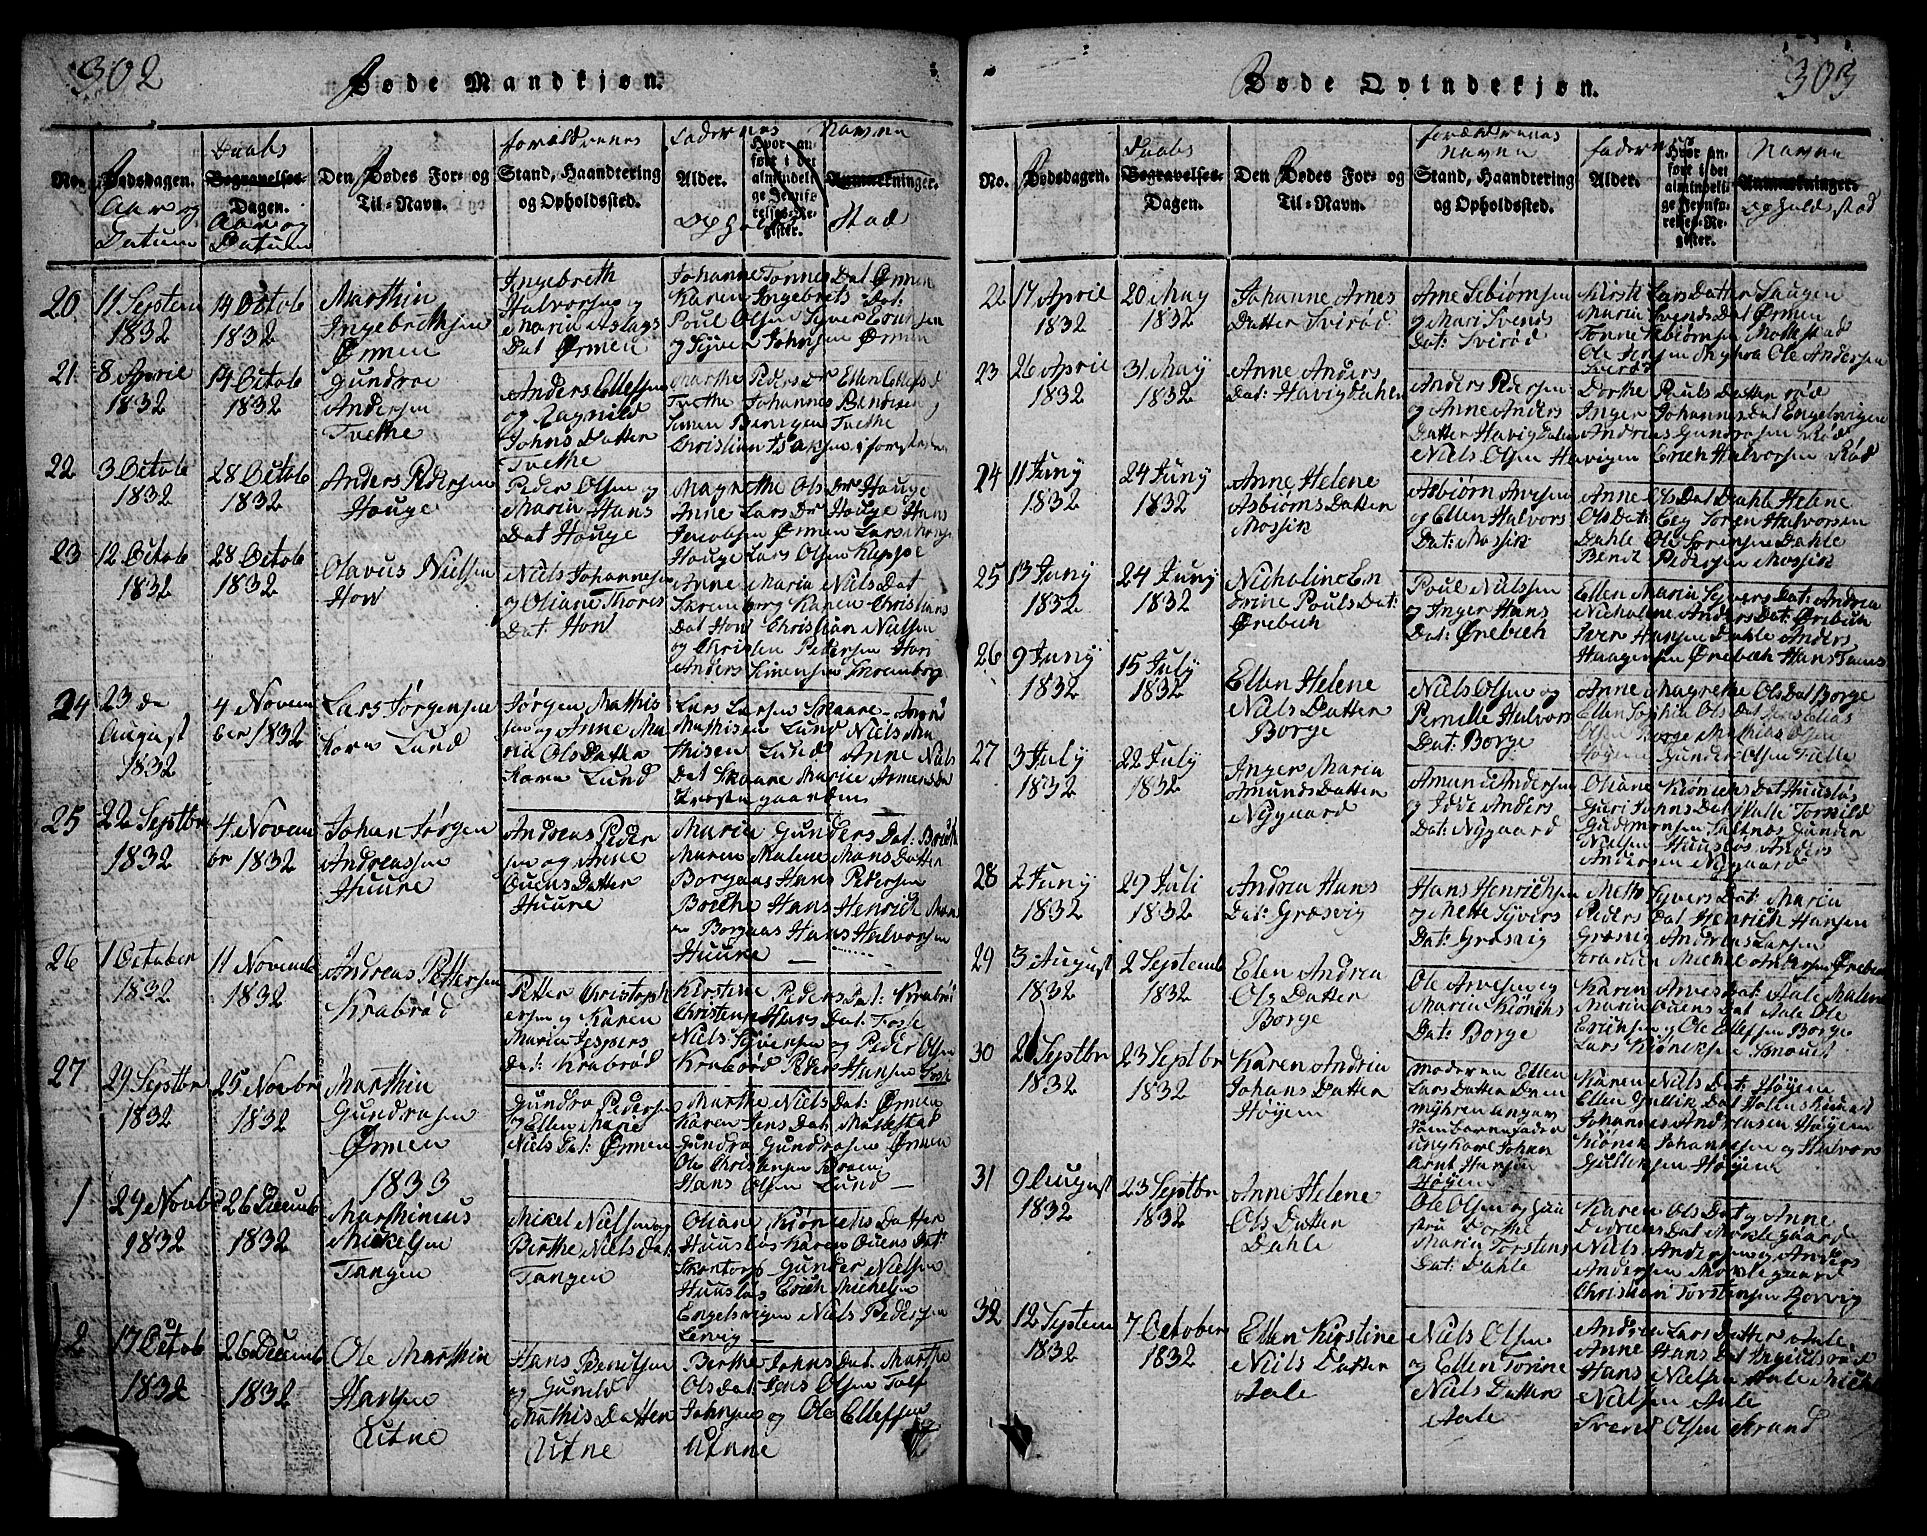 302
Døde Mandkjøn.
No.
Fødsdagen.
Aar og
Datum
Daabs
Begravelses-
Dagen.
Aar og
Datum
Den Fødes For- og
Til-Navn.
forældrenes
Stand, Haandtering
og Opholdssted.
Faddernes
Alder.
Ophold
Hvor an-
ført i det
almindeli-
ge Jevnfø-
relses-Re-
gister.
Navne
Anmærkninger.
Stæd
20
11 Septem
1832
14 Octob
1832
Marthin
Ingebrethsen
Ørmen
Ingebreth
Halvorsen og
Maria Aslags
Dat Ørmen
Johanne Tonnes Dat Ørmen
Karen Ingebrets Dat:
Poul Olsen Syver Erichsen
og Syver Johnsen Ørmen
21
8 April
1832
14 Octob
1832
Gundroe
Andersen
Tvethe
Anders Ellefsen
og Ragnild
Johns Datter
Tvethe
Marthe Peders Dr Ellen Ellefs D
Tvethe Johannes Bendixen
Simen Bentsen Tvethe
Christian Isaksen i forstaden
22
3 Octob
1832
28 Octob
1832
Anders Pedersen
Houge
Peder Olsen og
Maria Hans
Dat Houge
Magrethe Ols Dr Houge
Anne Lars Dr Houge Hans
Jacobsen Ørmen Lars Monsen
Houge Lars Olsen Kleppe
23
12 Octob
1832
28 Octob
1832
Olavus Nielsen
How
Niels Johannesen
og Oliane Thores
Dat: How
Anne Maria Niels Dat
Skrenborg Karen Christians
Dat How Christian Nielsen
og Christen Petersen How
Anders Simensen Skrenborg
24
23 de
August
1832
4 Novem
ber 1832
Lars Jørgensen
Kors Lund
Jørgen Mathis
sen og Anne Ma
ria Ols Datter
Kors Lund
Lars Larsen Skaare
Mathisen Lund Niels Ma
thisen Lund Anne Niels
Dat Skaare Marie Armens Dat
Trostegaarden
25
22 Septbr
1832
4 Novem
br 1832
Johan Jørgen
Andreassen
Huure
Andreas Peder
sen og Anne
Ouens Datter
Huure
Maria Gunders Dat: Borthe
Maren Malene Hans Datter
Borgaas Hans Pedersen
Borthe Hans Henrich
Borgaas Hans Halvorsen
Huure
26
1 October
1832
11 Novemb
1832
Andreas Pettersen
Krabrød
Petter Christoph
ersen og Karen
Maria Jespers
Dat: Krabrød
Kirstine Peders Dat: Krabrød
Christense Hans Dat: Tosse
Niels Syversen og Peder Olsen
Krabrød Peder Hansen Tosse
27
29 Septbr
1832
25 Novbr
1832
Marthin
Gundrosen
Ørmen
Gundro Pedersen
og Ellen Marie
Niels Dat: Ørmen
Marthe Niels Dat: Ørmen
Karen Jens Dat Mallestad
Gundro Gundrosen Ørmen
Ole Christensen Braem
Hans Olsen Lund
1833
1
29 Novbr
1832
26 Decemb
1832
Marthinius
Mickelsen
Tangen
Mikel Nielsen og
Berthe Niels Dat:
Tangen
Olian Kiøniks Datter
Huusløs Karen Ouens Dat
Skontorp Gunder Nielsen
Huusløs Erich Mickelsen
Engelsvigen Niels Pedersen
Lervig
2
17 Octob
1832
26 Decemb
1832
Ole Marthin
Hansen
Utne
Hans Bendtsen
og Gunild
Mathis Datter
Utne
Berthe Johns Dat. Marthe
Ols Dat Jens Olsen Tolf
Johnsen og Ole Ellefsen
Utnne
303
Døde Qvindekjøn.
No.
Fødsdagen.
Daabs
Begravelses-
Dagen.
Den Fødes For- og
Til-Navn.
forældrenes
Navne
Stand, Haandtering
og Opholdssted.
faddernes
Alder.
Hvor an-
ført i det
almindeli-
ge Jevnfø-
relses-Re-
gister.
Navne
Anmærkninger.
opholdsstæd
22
17 April
1832
20 May
1832
Johanne Arnes
Datter Svirød
Arne Sebiørnsen
og Mari Svends
Dat: Svirød
Kirsti Lars Datter Saugen
Maria Svends Dat Ørmen
Tonne Sebiørnsen Mollestad
Ole Jensen Ole Andersen
Svirød
23
26 April
1832
31 May
1832
Anne Anders
Dat: Havigdahlen
Anders Pedersen
og Anne Anders
Datter Havig Dalen
Niels Olsen Havigen
Dorthe Pouls Datter rød
Inger Johannes Dat Engelsvigen
Andreas Gundrosen Rød
Erich Halvorsen Rød
24
11 Juny
1832
24 Juny
1832
Anne Helene
Asbiørns Datter
Mossik
Asbiørn Arvesen
og Ellen Halvors
Dat: Mossik
Anne Ols Dat Dahle Helene
Ols Dat: Eeg Soren Halvorsen
Dahle Ole Sorensen Dahle
Bendt Pedersen Mossik
25
13 Juny
1832
24 Juny
1832
Nicholine En
drine Pouls Dat:
Ørebech
Poul Nielsen
og Inger Hans
Dat: Ørebech
Ellen Maria Syvers Dat: Andrea
Nicholene Anders Dat: Ørebech
Iver Hansen Dahle Anders
Haagensen Ørebech Hans
26
9 Juny
1832
15 July
1832
Ellen Helene
Niels Datter
Borge
Niels Olsen og
Pernille Halvors
Dat: Borge
Anne Magrethe Ols Dat Borge
Ellen Sophia Ols Dat Jens Elias
Olsen Borge Mathias Olsen
Høgene Gunder Olsen Tielle
27
3 July
1832
22 July
1832
Inger Maria
Amunds Datter
Nygaard
Amund Andersen
og Idde Anders
Dat: Nygaard
Oliane Kiøniks Dat Huusløs
Guri Johns Dat Valle Torkild
Gudmonsen Saltnes Gunder
Nielsen Huusløs Anders
Andersen Nygaard
28
2 Juny
1832
29 Juli
1832
Andrea Hans
Dat: Græsvig
Hans Henrichsen
og Mette Syvers
Dat: Græsvig
Mette Syvers Dat: Maria
Peders Dat Henrich Hansen
Græsvig Andreas Larsen
Michel Andersen Ørebech
29
3 August
1832
2 Septemb
1832
Elen Andrea
Ols Datter
Borge
Ole Arvesen og
Maria Kiøniks
Dat: Borge
Karen Arves Dat: Aale Malene
Maria Ouens Dat Aale Ole
Ericksen og Ole Ellefsen Borge
Lars Kiøniksen
30
2 Septbr
1832
23 Septbr
1832
Karen Andria
Johans Datter
Høyem
Moderen Ellen
Lars Datter Dam
myhren angav
som barnefader
ungkarl Johan
Arnt Hansen
Høyem
Karen Niels Dat: Høyem
Ellen Gullik Dat Holenskured
Johannes Andreasen Høyem
Kiønik Johannesen og Halvor
Gulliksen Høyene
31
9 August
1832
23 Septbr
1832
Anne Helene
Ols Datter
Dahle
Ole Olsen og hu
stru Dorthe
Maria Torstens
Dat: Dahle
Karen Ols Dat og Anne
Didriens Dat Moklegaard
Niels Andersen og Anders
Andersen Moklegaard
Christian Torstensen Borvig
32
12 Septem
1832
7 October
1832
Ellen Kirstine
Niels Datter
Aale
Niels Olsen
og Ellen Torine
Niels Datter
Aale
Andrea Lars Datters Aale
Anne Hans Dat Ingiulsrød
Hans Nielsen Aale Michel
Nielsen Aale
Svend Olsen Strand